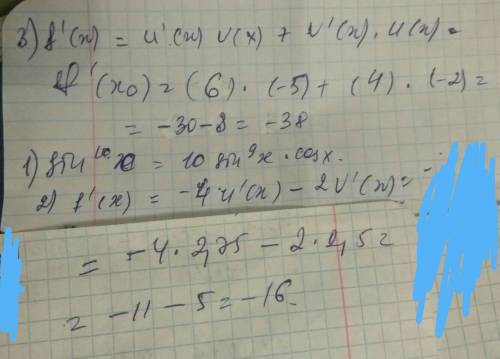 3) f'(x) = u'(x) v(x) + v'(x) · u(x) =
f'(x₀) = (6) · (-5) + (4) · (-2) =
= -30 - 8 = -38
1) sin¹⁰ x = 10 sin⁹ x · cos x.
2) f'(x) = -4 u'(x) - 2 v'(x) =
= -4 · 2,75 - 2 · 2,5 =
= -11 - 5 = -16.